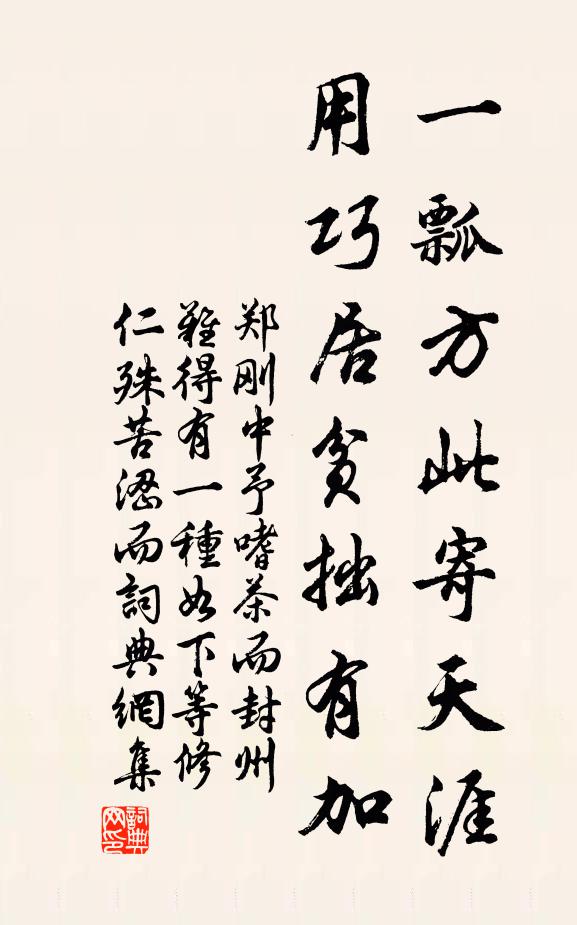 一瓢方此寄天涯
用巧居贫拙有加
郑刚中予嗜茶而封州
难得有一種如下等修
仁殊苦澀而詞典網集
詞典網印